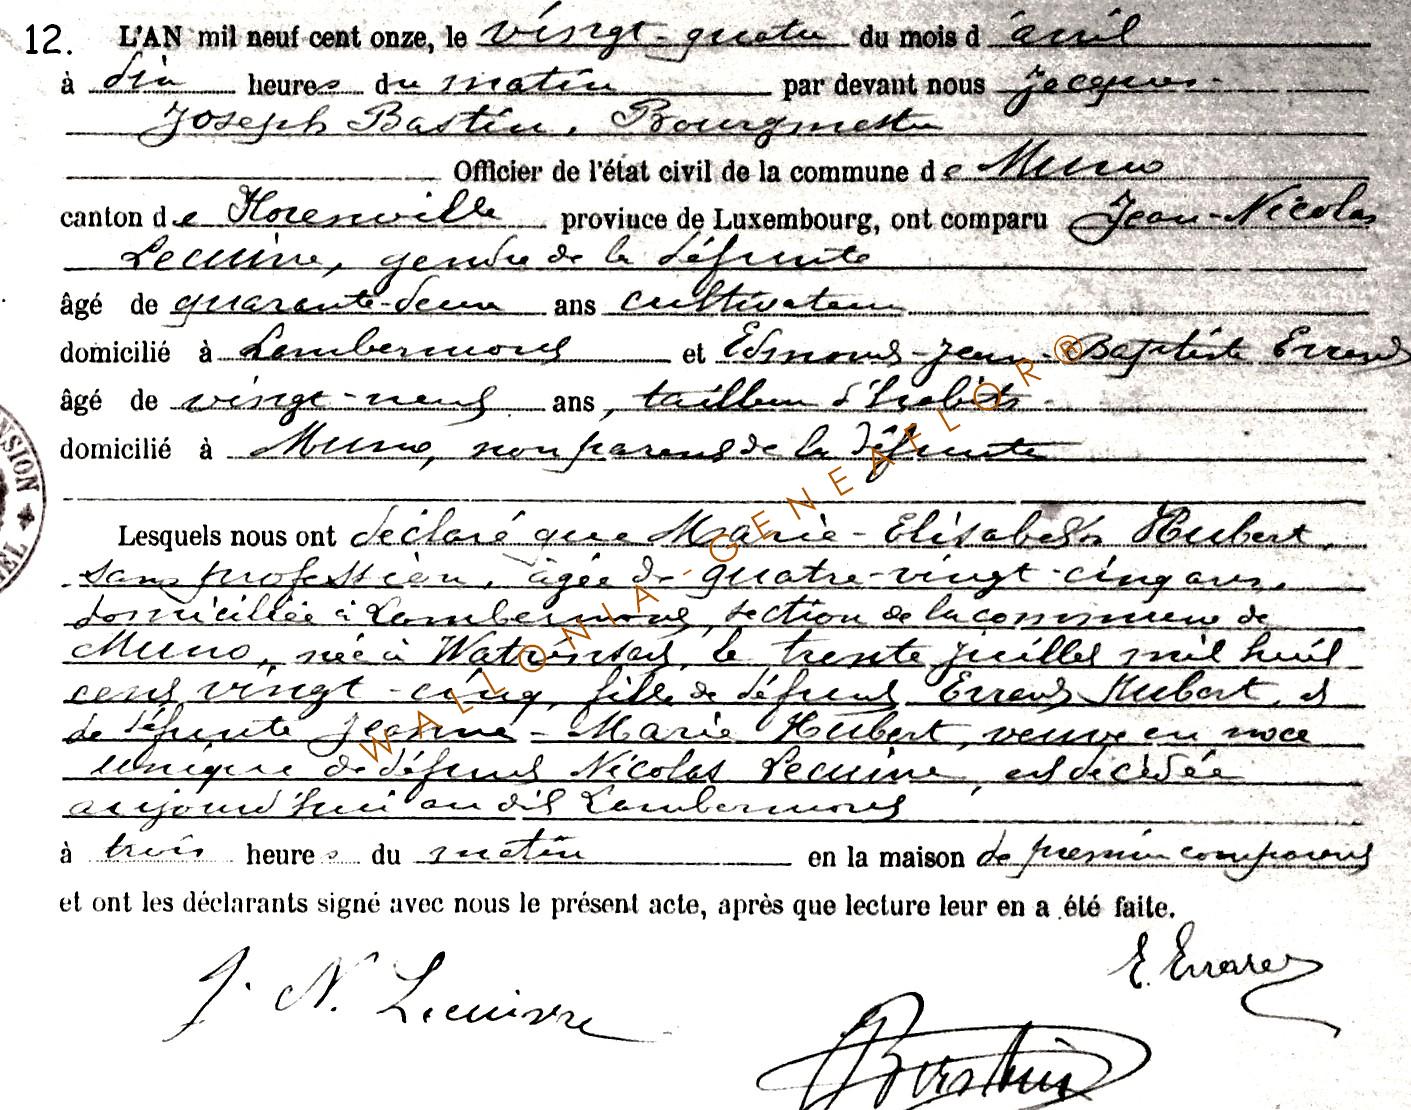 12. L'AN mil neuf cent onze, le vingt-quatre du mois d'avril
à dix heures du matin par devant nous Jacques-
Joseph Bastin, Bourgmestre
Officier de l'état civil de la commune de Muno
canton de Florenville province de Luxembourg, ont comparu Jean-Nicolas
Lecuivre, gendre de la défunte
âgé de quarante-deux ans cultivateur
domicilié à Lambermont et Edmond-Jean-Baptiste Errard
âgé de vingt-neuf ans, tailleur d'habits
domicilié à Muno, non parent de la défunte
Lesquels nous ont déclaré que Marie-Elisabeth Hubert,
sans profession, âgée de quatre-vingt-cinq ans,
domiciliée à Lambermont, section de la commune de
Muno, née à Watrinsart, le trente juillet mil huit
cent vingt-cinq, fille de défunt Errard Hubert, et
de défunte Jeanne-Marie Hubert, veuve en noce
unique de défunt Nicolas Lecuivre, est décédée
aujourd'hui au dit Lambermont
à trois heures du matin en la maison du premier comparant
et ont les déclarants signé avec nous le présent acte, après que lecture leur en a été faite.
J. N. Lecuivre
E. Errard
Bastin
WALLONIA-GENEAFLOR®